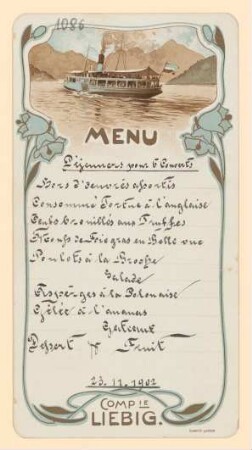 1086
MENU
Déjeuners pour 6 Couverts
Hors d'oeuvres assortis
Consommé Tortue à l'anglaise
Oeufs brouillés aux Truffes
de Foie gras en Belle vue
Poulets à la Broche
Salade
Asperges à la Polonaise
Gelée à l'ananas
Gateaux
Dessert Fruit
23.11.1902
COMP IE
LIEBIG.